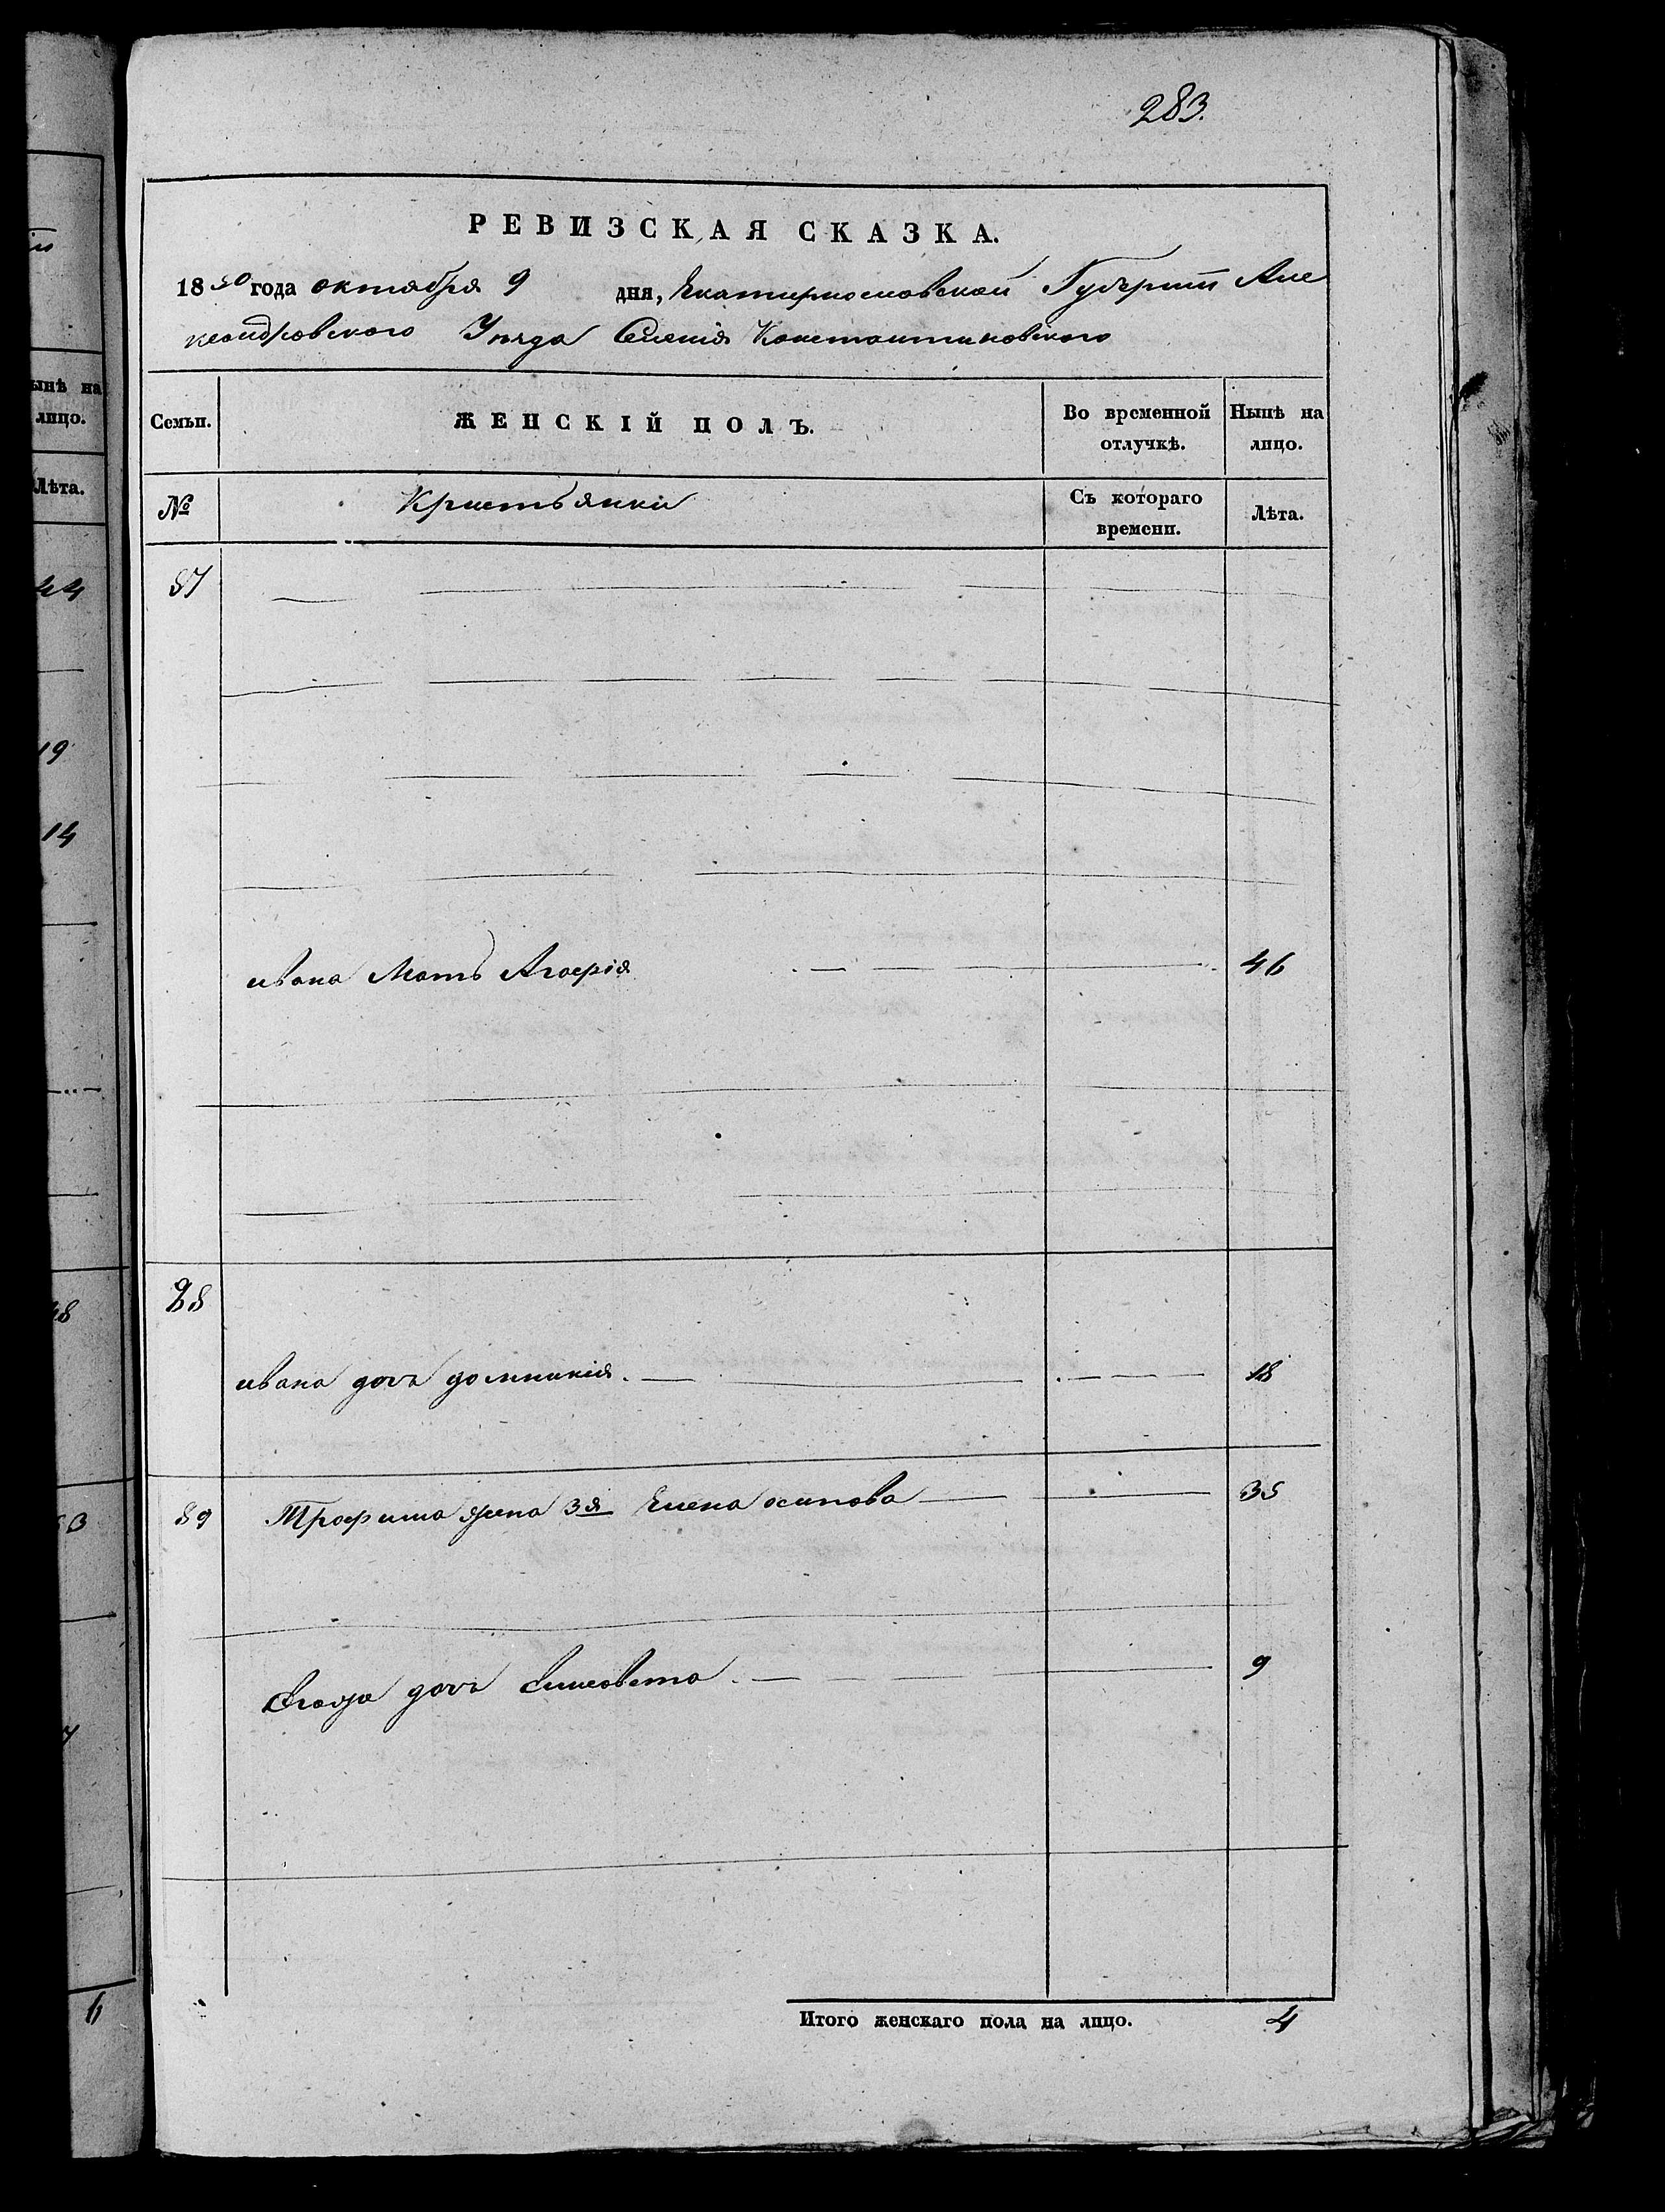 283.
РЕВИЗСКАЯ СКАЗКА.
1850 года октября 9 дня, Екатериносмовской Губернии Але
ксандровского Уезда Селения Константиновского
Семьи. ЖЕНСКІЙ ПОЛЪ. Во временной отлучкѣ. Нынѣ на лицо.
№ Кристьянки Съ котораго времени. Лѣта.
87
ивана Мать Агафія 46
88
ивана дочь домникія 18
89 Трофима жена 3я Елена осипова 35
дочь Елисовета 9
Итого женскаго пола на лицо. 4
ынѣ на
лицо.
Лѣта.
44
19
14
48
6